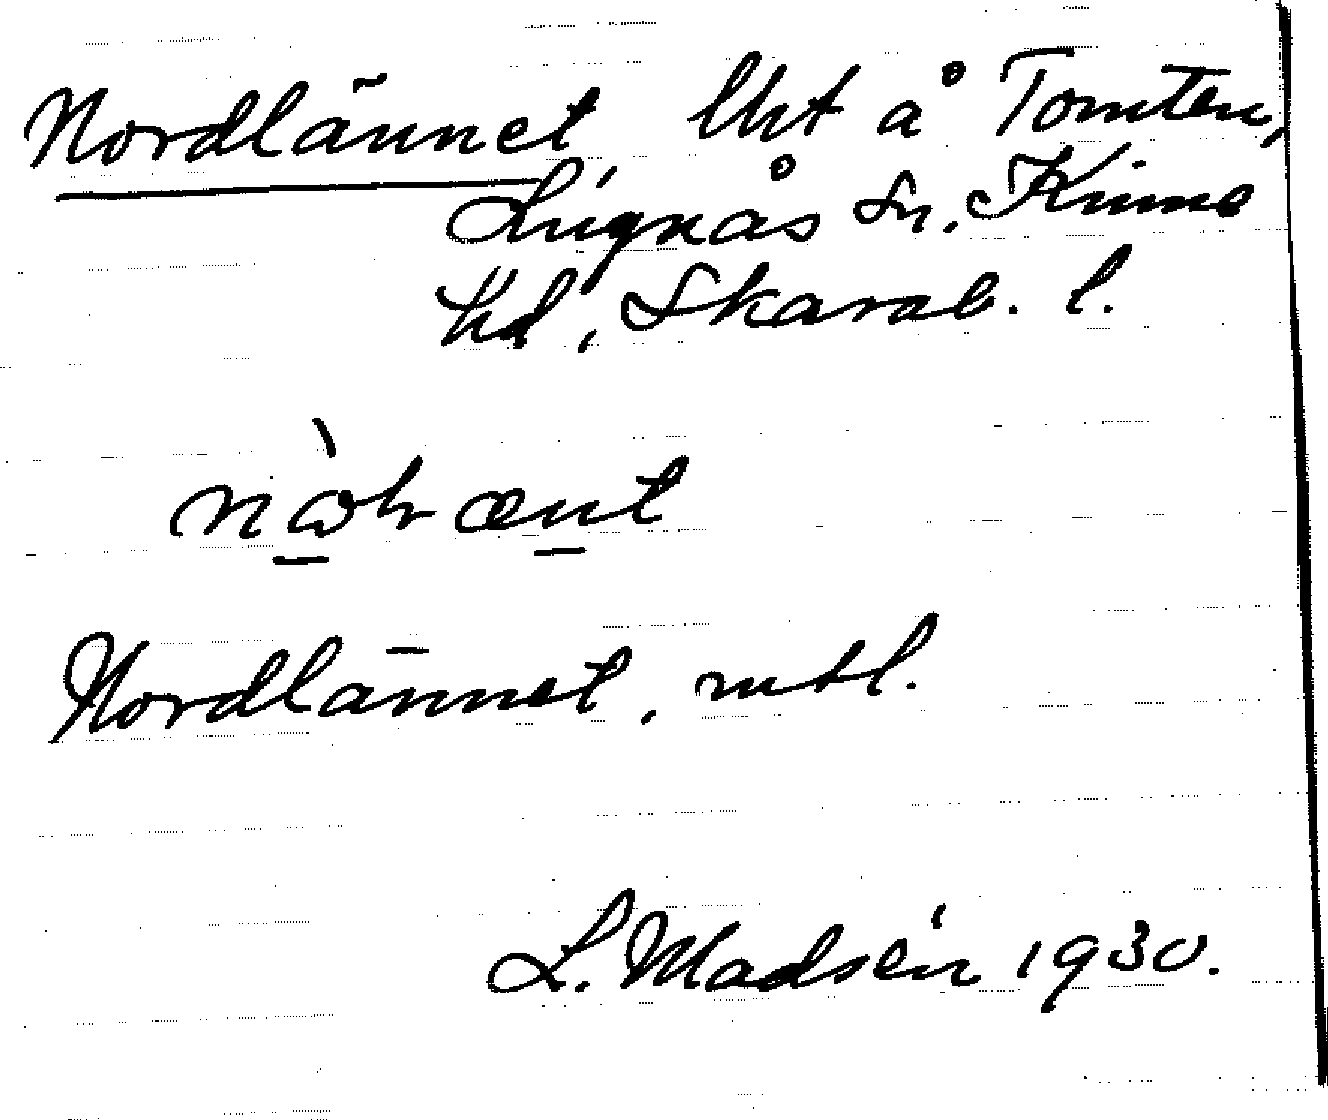 Nordlännet, lht å Tomten,
Lugnås sn, Kinne
hd, Skarab. l.
Nordlännet, mtl.
L. Madsén 1930.